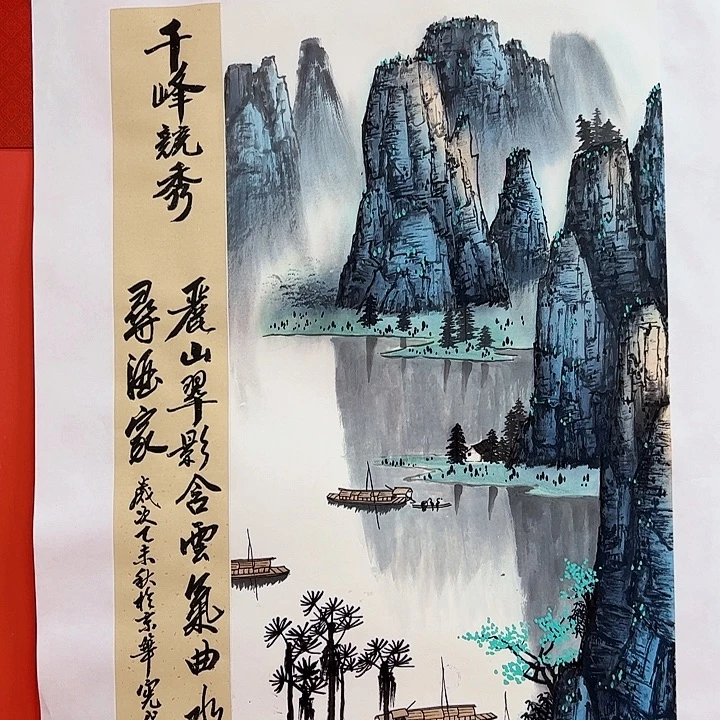 千峰競秀
麗山翠影含雲氣曲水
尋酒家
歲次乙未秋於京華